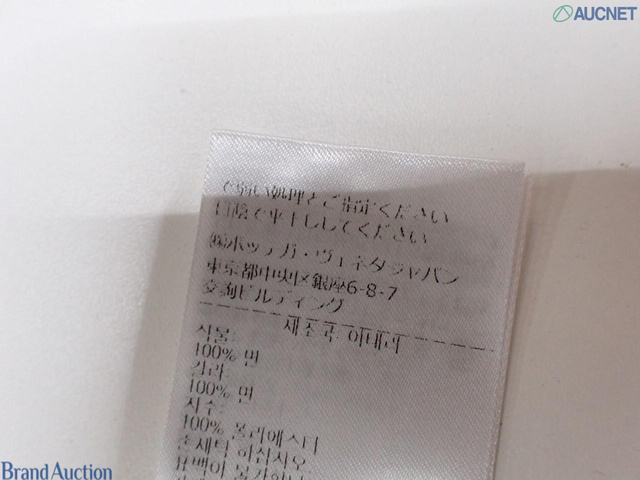 AUCNET
で弱い処理をご指定ください
日陰で平干ししてください
㈱ボッテガ・ヴェネタジャパン
東京都中央区銀座6-8-7
交詢ビルディング
제조국: 이태리
직물:
100% 면
컬러:
100% 면
자수:
100% 폴리에스터
손세탁 하십시오.
표백이 불가
Brand Auction